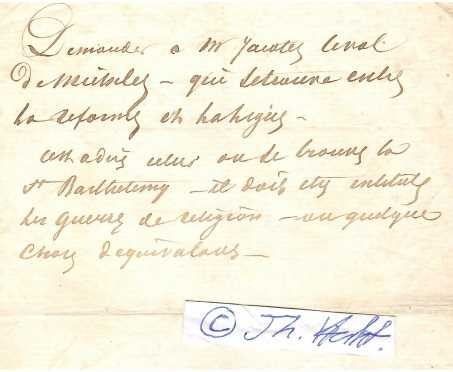 Demander a Mr Jacotey le vol
De Michelet – qui se trouve entre
La reforme et la ligue –
cest a dire celui ou se trouve la
St Barthelemy – il doit etre intitule
Les guerres de religion – ou quelque
chose dequivalent –
© Th. Hecht.